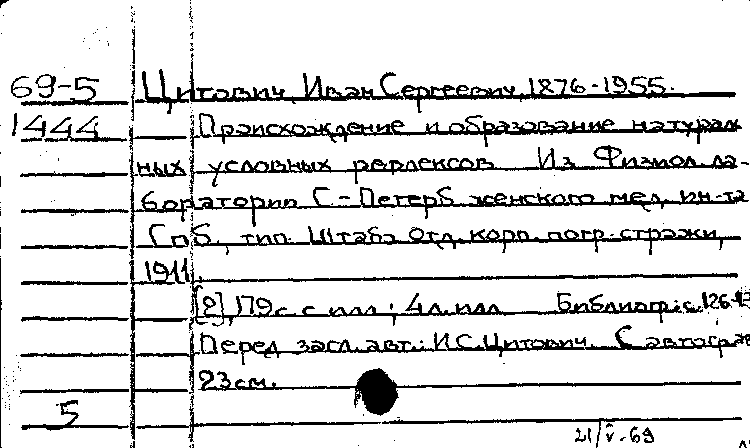 69-5 Цитович, Иван Сергеевич, 1876-1955.
1444 Происхождение и образование натураль
ных условных рефлексов Из Физиол. ла-
боратории С-Петерб. женского мед. ин-та
Спб., тип. Штаба Отд. корп. погр. стражи,
1911.
[2], 179 с. с илл.; 4 л. илл. Библиогр.: с. 126-
Перед загл. авт.: И.С. Цитович. С автогра
23 см.
5
21/V-69